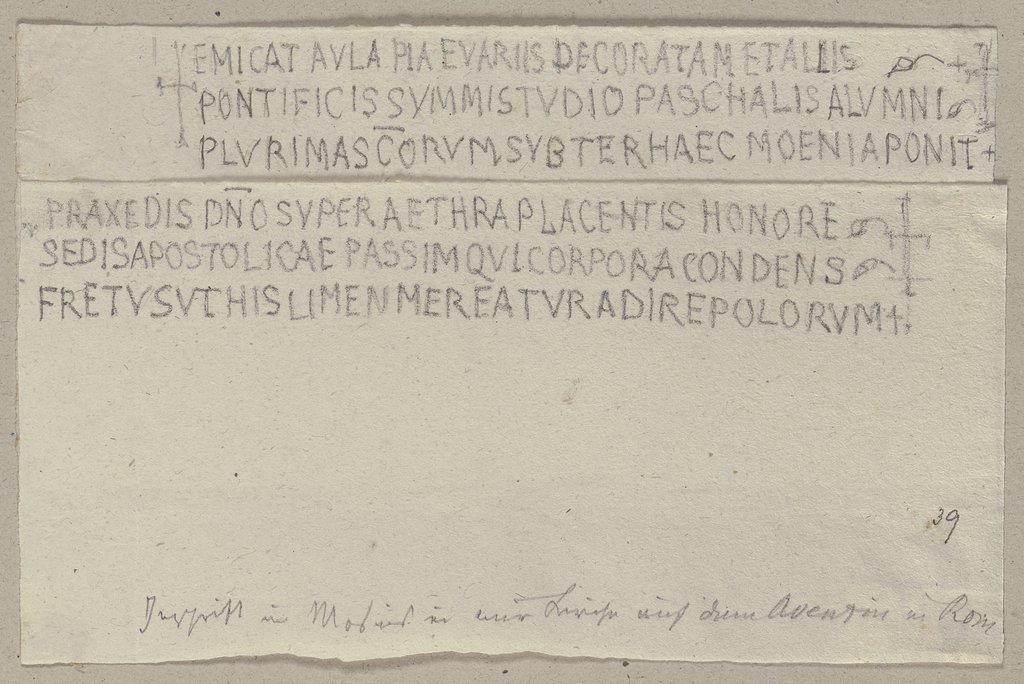 EMICAT AVLA PIAE VARIIS DECORATA METALLIS
PONTIFICIS SYMMISTVDIO PASCHALIS ALVMNI
PLVRIMAS C̅ORVM SVBTER HAEC MOENIA PONIT +
PRAXEDIS DN̅O SVPER AETHRA PLACENTIS HONORE
SEDIS APOSTOLICAE PASSIM QVI CORPORA CONDENS
FRETVS VT HIS LIMEN MEREATVR ADIRE POLORVM +
39
Inschrift in Mosaik in einer Kirche auf dem Aventin in Rom